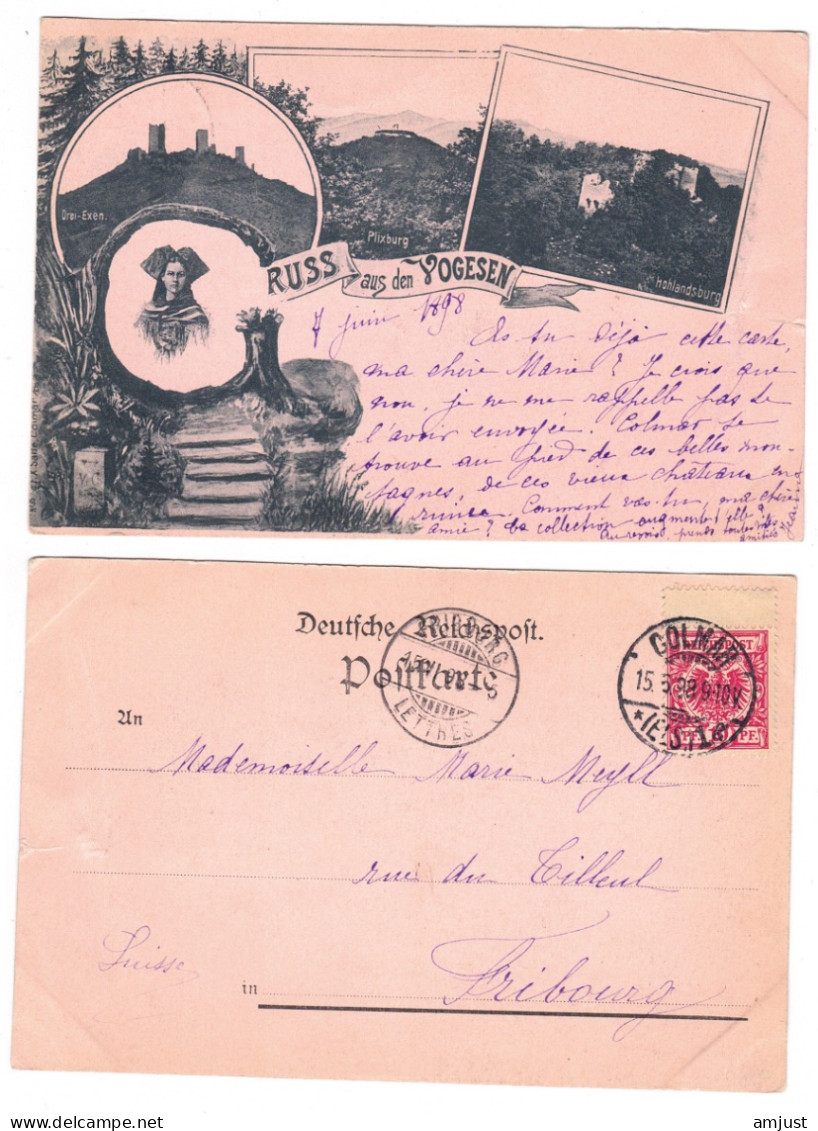 Drei-Exen.
Plixburg
Hohlandsburg
GRUSS aus den VOGESEN
7 juin 1898
As tu déjà cette carte,
ma chère Marie? Je crois que
non, je ne me rappelle pas de
l'avoir envoyée. Colmar se
trouve au pied de ces belles mon-
tagnes, de ces vieux châteaux en
ruines. Comment vas-tu, ma chère
amie? ta collection augmente t'elle?
Au revoir, prends toutes mes
amitiés
Deutsche Reichspost.
Postkarte
FRIBOURG
15.VI.98
LETTRES
COLMAR
15.6.98.9-10V.
*(ELS.)1a
REICHSPOST
PF. PF.
An
Mademoiselle Marie Meyll
rue du Tilleul
Suisse
in Fribourg
© amjust